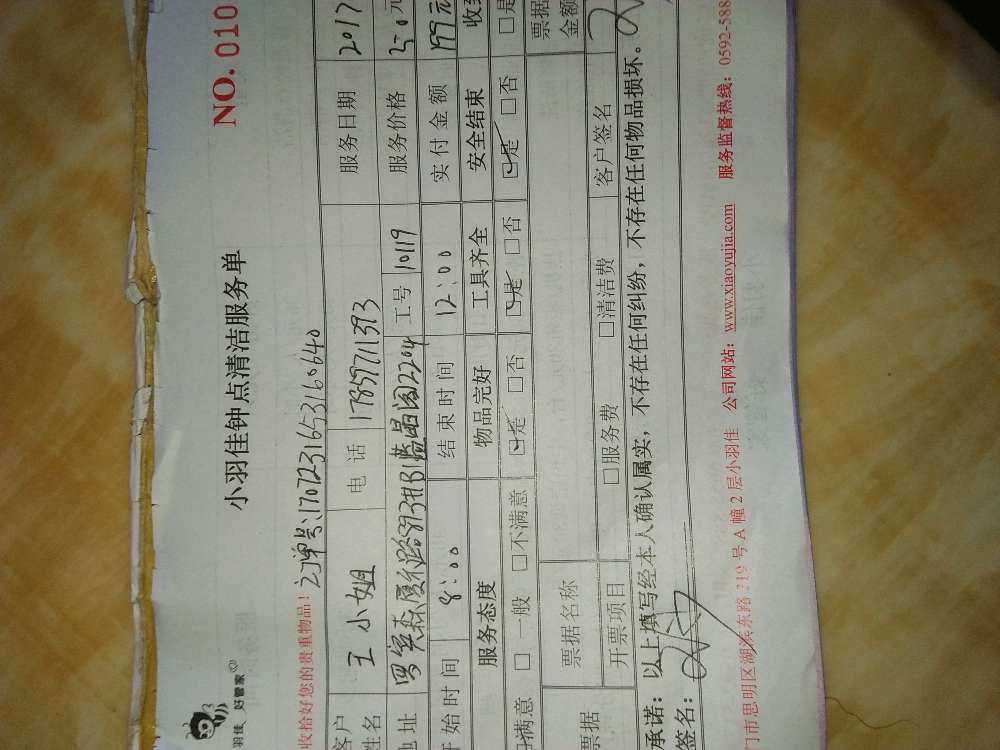 NO.010
羽佳 好管家
小羽佳钟点清洁服务单
收拾好您的贵重物品! 订单号:1707231653160640
客户姓名 王小姐 电话 17859711393 服务日期 2017
地址 路813号 蓝晶阁2204 工号 10119 服务价格 元
开始时间 8:00 结束时间 12:00 实付金额 199元
服务态度 物品完好 工具齐全 安全结束 收
☑满意 □一般 □不满意 ☑是 □否 ☑是 □否 ☑是 □否 □是
票据 票据名称 票据金额
开票项目 □服务费 □清洁费 客户签名
承诺:以上填写经本人确认属实,不存在任何纠纷,不存在任何物品损坏。
签名:
门市思明区湖滨东路319号A幢2层小羽佳 公司网站:www.xiaoyujia.com 服务监督热线:0592-588